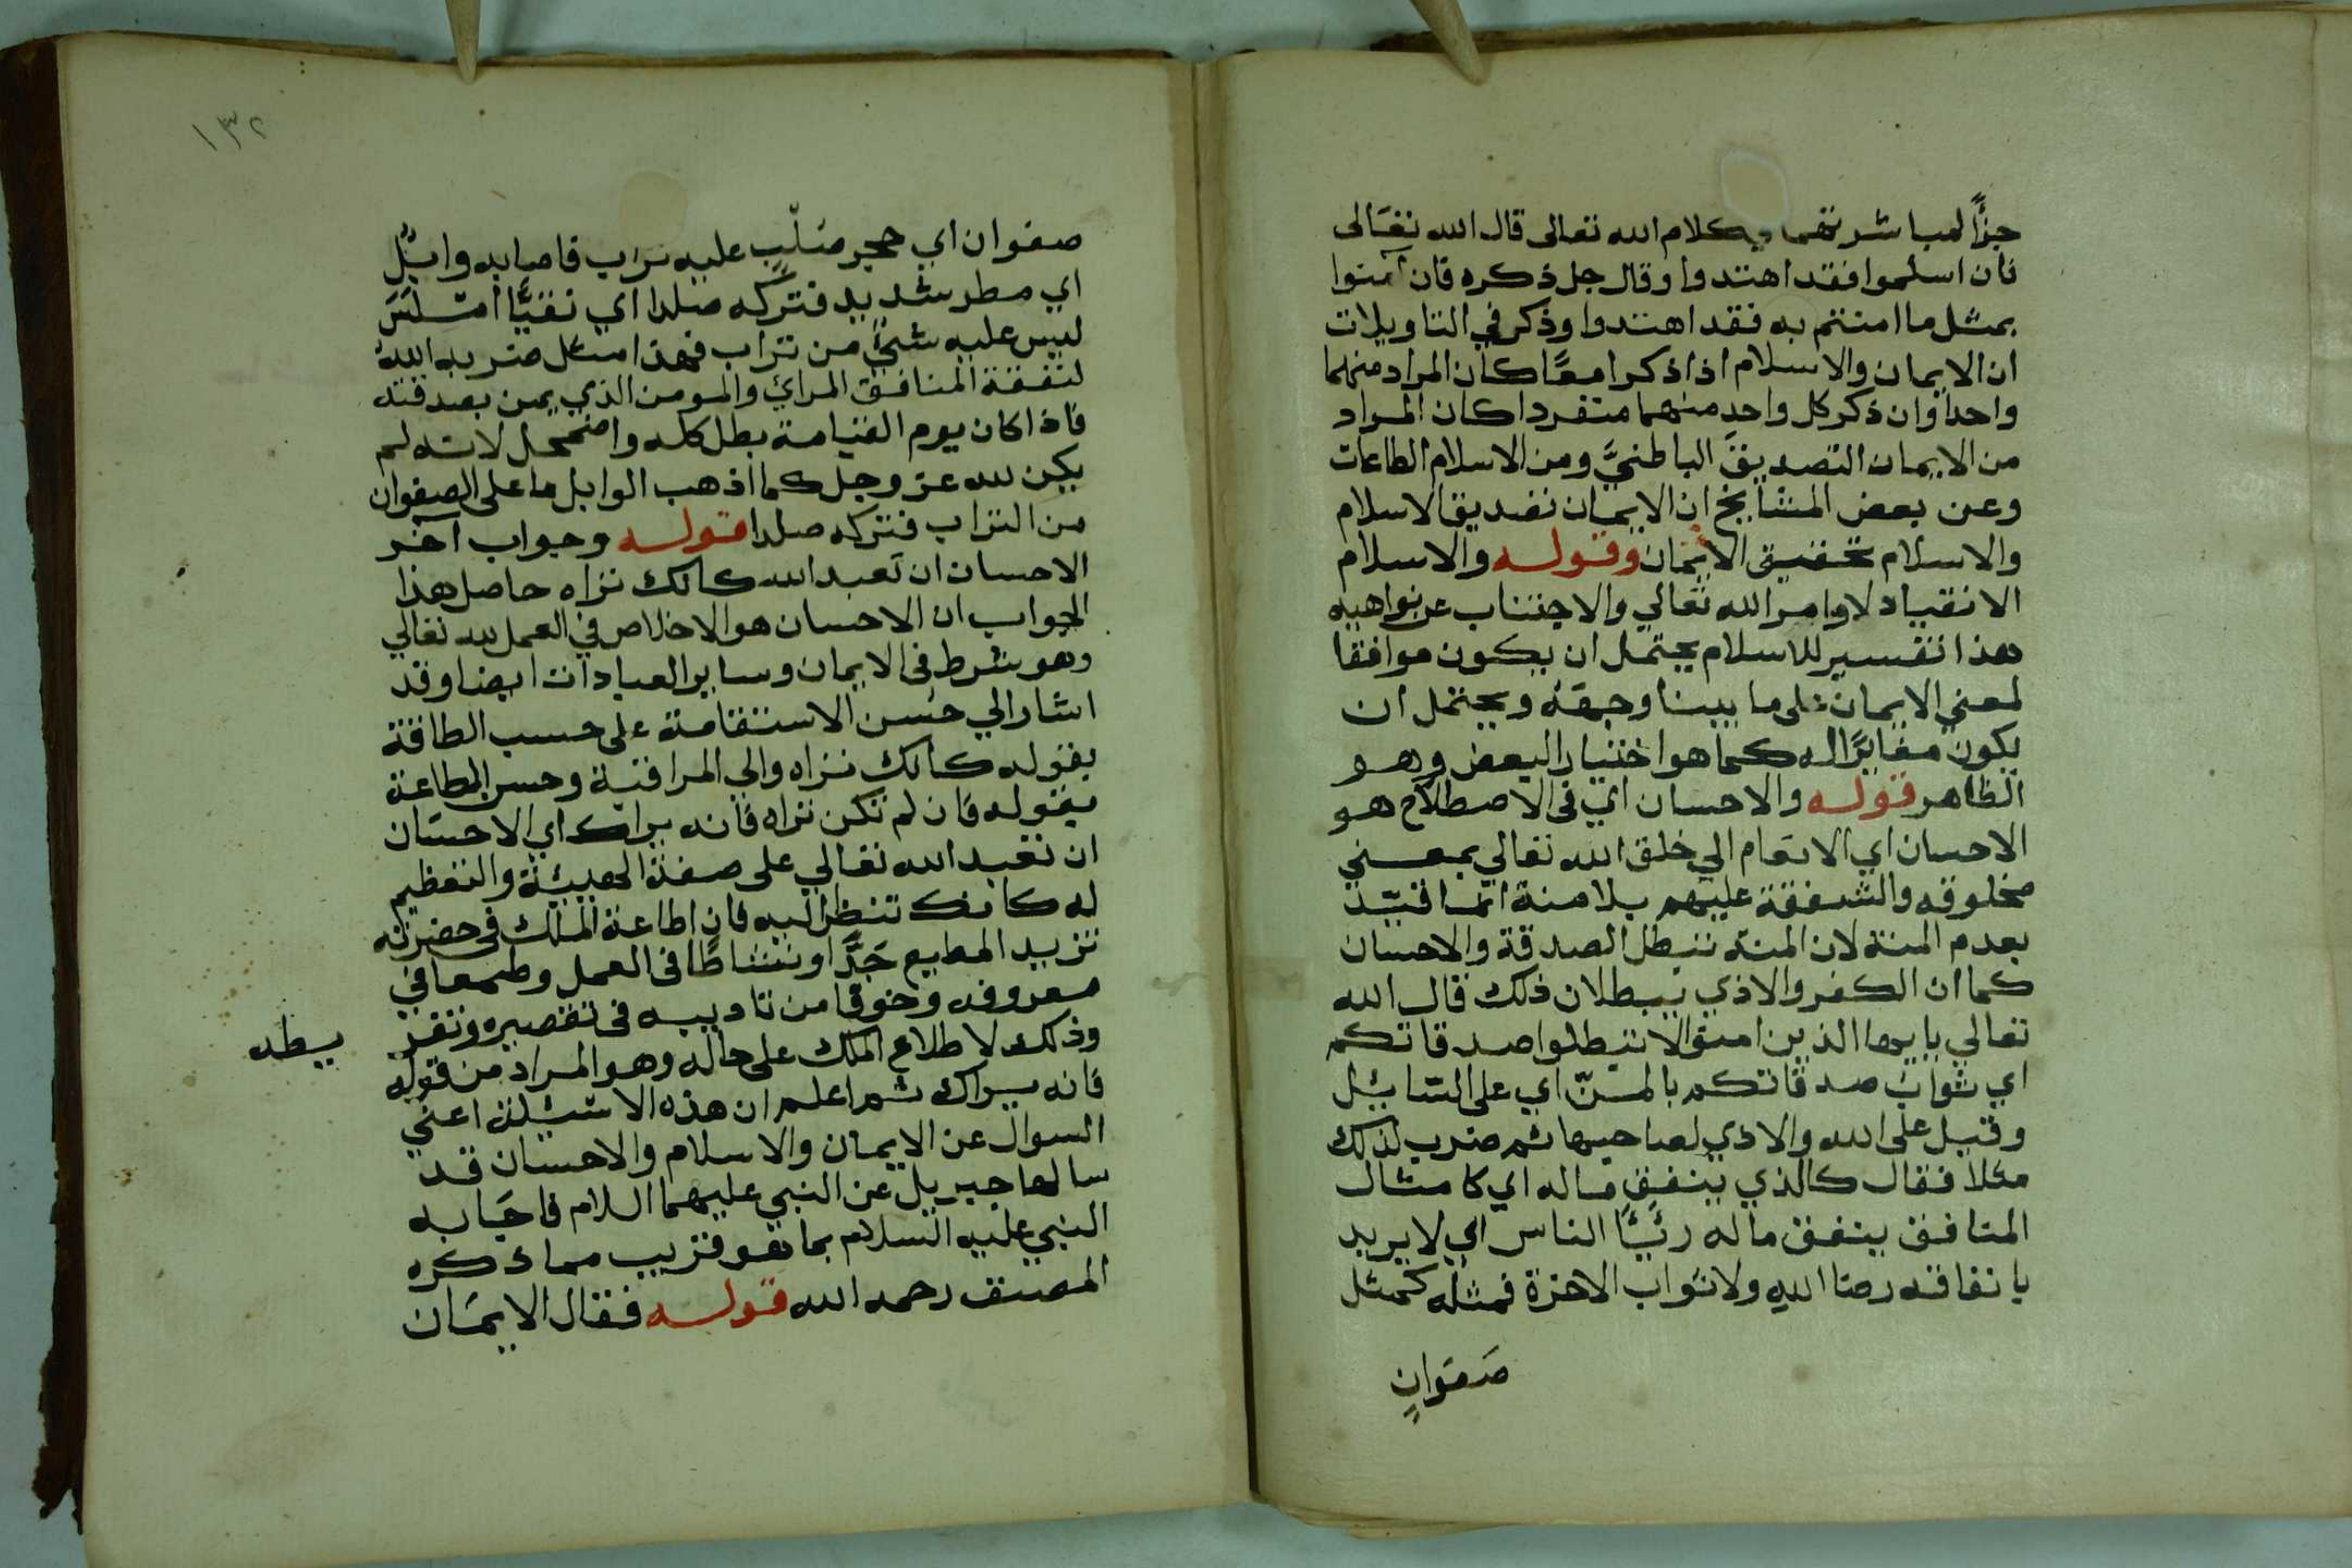 جزأً لمباشرتهما بكلام الله تعالى قال الله تعَالى
فان اسلموا فقد اهتدوا وقال جل ذكره فان آمنوا
بمثل ما امنتم به فقد اهتدوا وذكر في التاويلات
ان الايمان والاسلام اذا ذكرا معًا كان المراد منهما
واحدا وان ذكر كل واحدٍ منهما متفردا كان المراد
من الايمان التصديقَ الباطنيَّ ومن الاسلام الطاعات
وعن بعض المشايخ ان الايمان تصديق الاسلام
والاسلام تحقيق الايمان وقوله والاسلام
الانقياد لاوامر الله تعالي والاجتناب عن نواهيه
هذا تفسير للاسلام يحتمل ان يكون موافقا
لمعني الايمان على ما بينا وجهَهُ ويحتمل ان
يكون مغايرًا له كما هو اختيار البعض وهو
الظاهر قوله والاحسان اي في الاصطلاح هو
الاحسان اي الانعام الي خلق الله تعالي بمعني
مخلوقه والشفقة عليهم بلا منة انما قيّد
بعدم المنة لان المنة تبطل الصدقة والاحسان
كما ان الكفر والاذي يبطلان ذلك قال الله
تعالي يا ايها الذين امنوا لا تبطلوا صدقاتكم
اي ثوابَ صدقاتكم بالمنّ اي على السّائل
وقيل على الله والاذي لصاحبها ثم ضرب لذلك
مثلا فقال كالذي ينفق ماله اي كامثال
المنافق ينفق ماله رئَآءً الناس اي لا يريد
بانفاقه رضا اللهِ ولا ثواب الاخرة فمثله كمثل
صَفوَانٍ
١٣٢
صفوان اي حجرٍ صَلْبٍ عليه تراب فاصابه وابلٌ
اي مطر شديد فتركه صلدا اي نقيًّا املسَ
ليس عليه شيءٌ من تراب فهذا مثل ضربه الله
لنفقة المنافق المرائي والمومن الذي يمن بصدقته
فاذا كان يوم القيامة بطل كله واضمحل لانه لم
يكن لله عز وجل كما اذهب الوابل ما على الصفوان
من التراب فتركه صلدا قوله وجواب آخر
الاحسان ان تعبد الله كانك تراه حاصل هذا
الجواب ان الاحسان هو الاخلاص في العمل لله تعالي
وهو شرط في الايمان وساير العبادات ايضا وقد
اشار الي حسن الاستقامة على حسب الطاقة
بقوله كانك تراه والي المراقبة وحسن الطاعة
بقوله فان لم تكن تراه فانه يراك اي الاحسَان
ان تعبد الله تعالي على صفة الهيبة والتعظيم
له كانك تنظر اليه فان اطاعة الملك في حضرته
تزيد المطيع جَدًّا ونشاطًا في العمل وطمعا في
معروفه وخوفا من تاديبه في تقصيره وتفر
يطه
وذلك لاطلاع الملك على حاله وهو المراد من قوله
فانه يراك ثم اعلم ان هذه الاسئلة اعني
السوال عن الايمان والاسلام والاحسان قد
سالها جبريل عن النبي عليهما السلام فاجَابه
النبي عليه السلام بما هو قريب مما ذكره
المصنف رحمه الله قوله فقال الايمَان